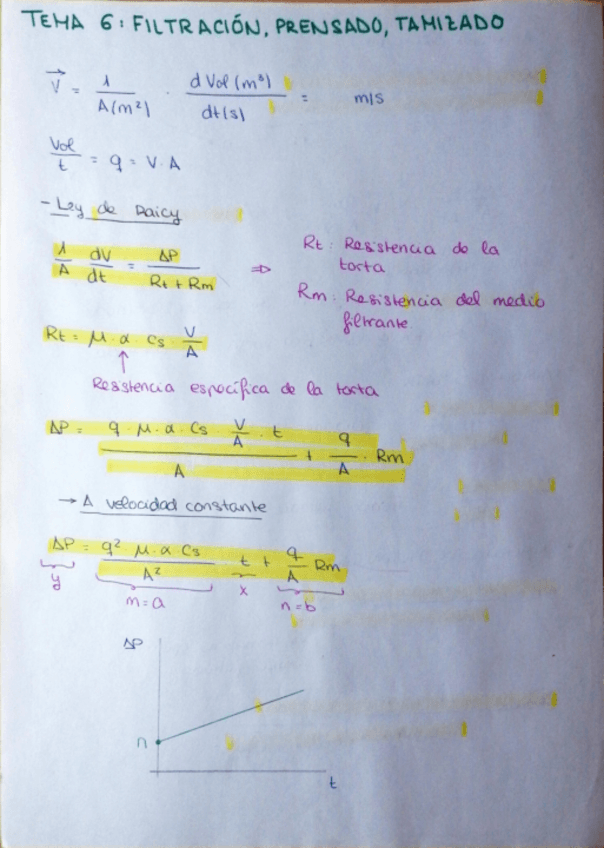 TEMA 6: FILTRACIÓN, PRENSADO, TAMIZADO
V⃗ = 1/A(m²) · dVol(m³)/dt(s) = m/s
Vol/t = q = V·A
- Ley de Daicy
1/A dV/dt = ΔP/(Rt + Rm) ⇒
Rt: Resistencia de la
torta
Rm: Resistencia del medio
filtrante
Rt = μ · α · Cs · V/A
↑
Resistencia específica de la torta
ΔP = (q · μ · α · Cs · V/A · t)/A + q/A · Rm
→ A velocidad constante
ΔP = q² μ · α Cs/A² t + q/A Rm
y m = a x n = b
ΔP
n
t